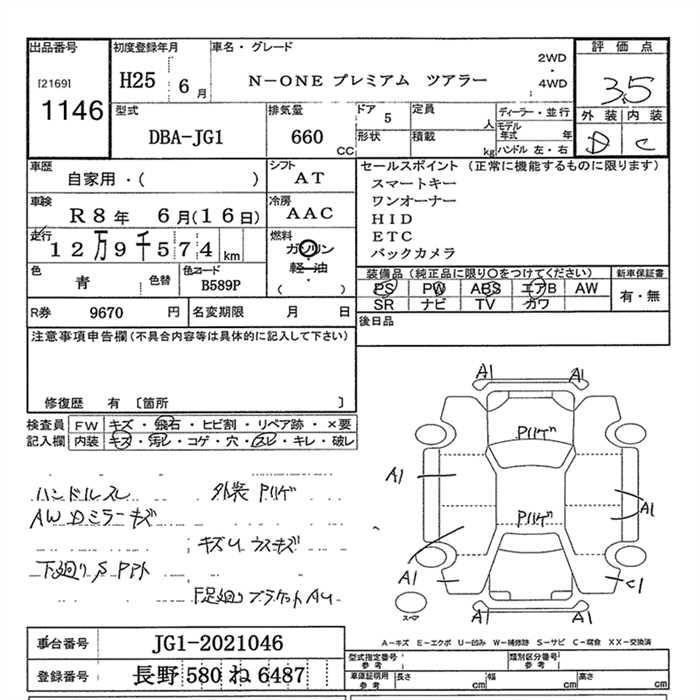 出品番号
[2169]
1146
初度登録年月
H25 6 月
車名・グレード
N-ONE プレミアム ツアラー
2WD
・
4WD
評価点
3.5
外装 内装
D C
型式
DBA-JG1
排気量
660 CC
ドア 5
形状
定員 人
積載 kg
ディーラー・並行
モデル年式 年
ハンドル 左・右
車歴
自家用・( )
シフト
AT
車検
R8年 6月(16日)
冷房
AAC
走行
12万9千574 km
燃料
ガソリン
・
軽油
・
( )
色
青
色替
色コード
B589P
R券 9670 円
名変期限 月 日
セールスポイント (正常に機能するものに限ります)
スマートキー
ワンオーナー
HID
ETC
バックカメラ
装備品 (純正品に限り○をつけてください)
PS PW ABS エアB AW
SR ナビ TV カワ
新車保証書
有・無
後日品
注意事項申告欄(不具合内容等は具体的に記入して下さい)
修復歴 有 〔箇所 〕
検査員記入欄
FW キズ・飛石・ヒビ割・リペア跡・×要
内装 キズ・汚レ・コゲ・穴・スレ・キレ・破レ
ハンドルスレ 外装Pハゲ
AWDミラーキズ
キズUウスキズ
下廻りS
下足廻りブラケット
A1 A1
Pハゲ
A1
A1
Pハゲ
A1
C1
A1 A1
スペア
A-キズ E-エクボ U-凹み W-補修跡 S-サビ C-腐食 XX-交換済
車台番号 JG1-2021046
登録番号 長野 580 ね 6487
型式指定番号 参考
類別区分番号 参考
車庫証明用 参考
長さ cm
幅 cm
高さ cm